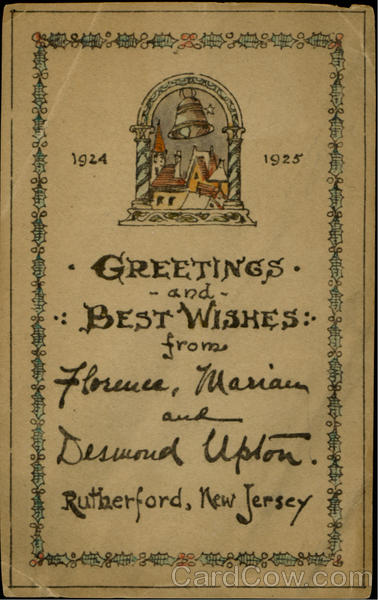 1924 1925
· GREETINGS ·
- and -
·: BEST WISHES :·
from
Florence, Mariam
and
Desmond Upton.
Rutherford, New Jersey
CardCow.com